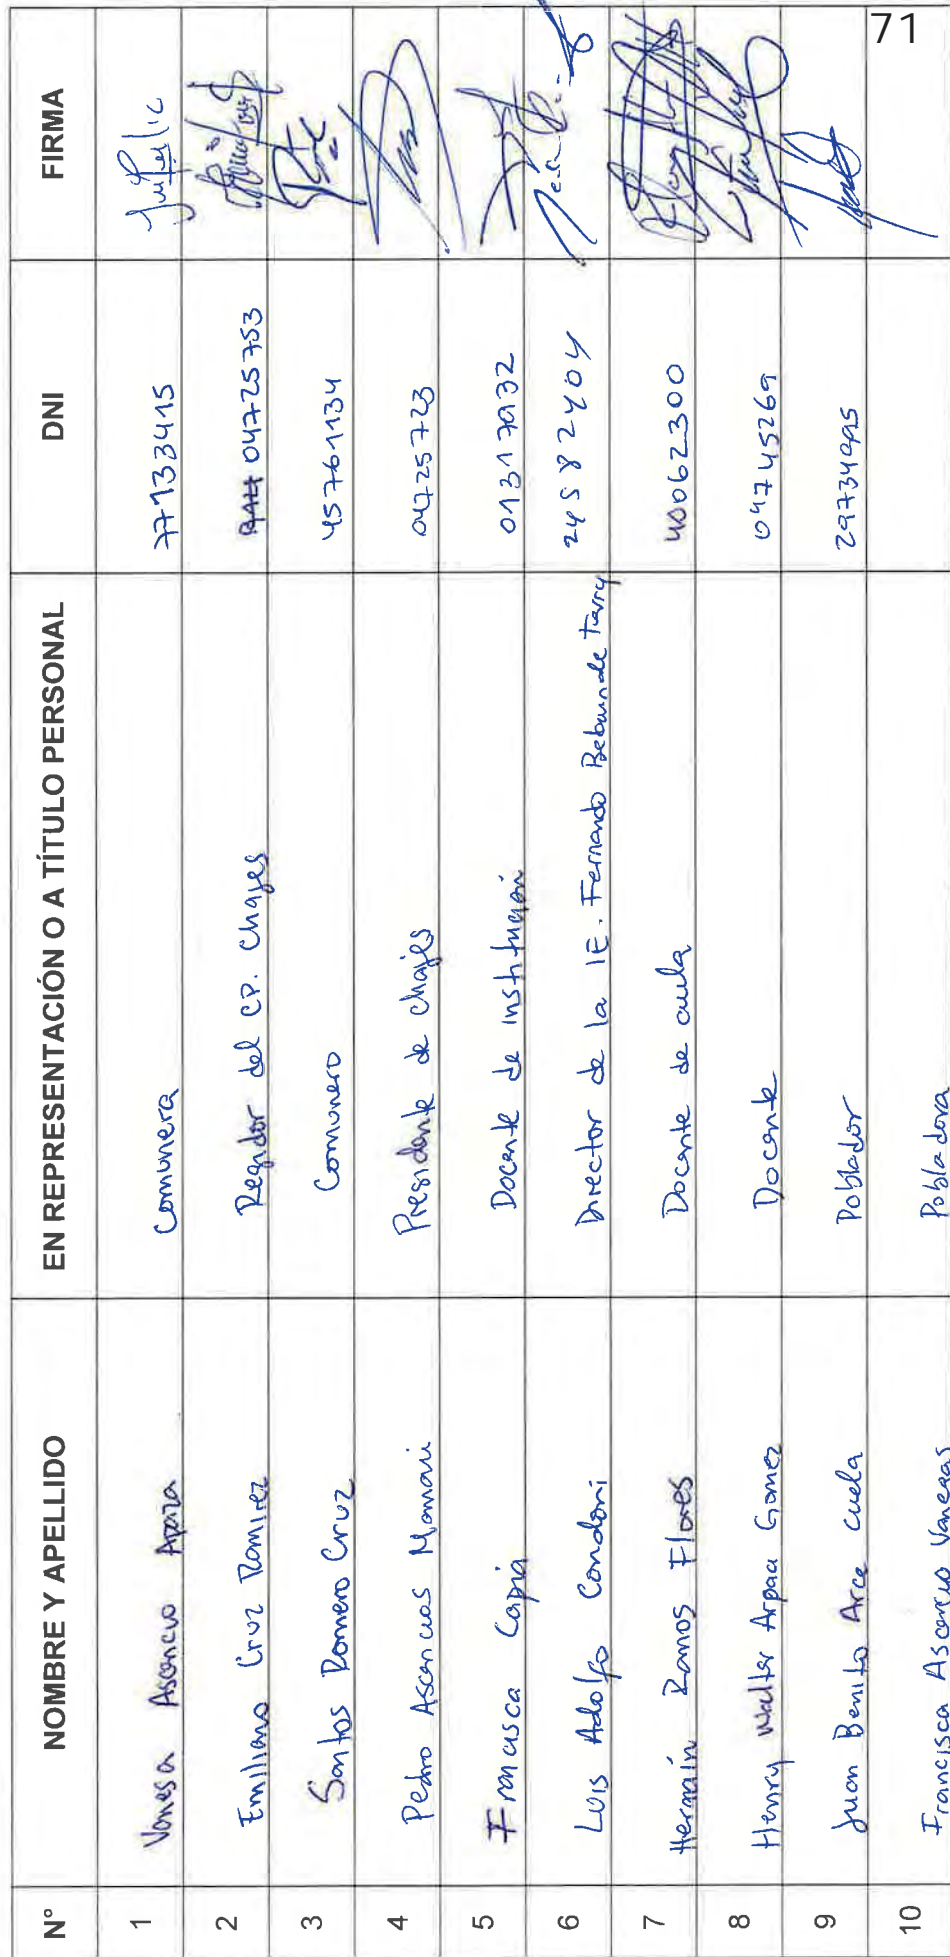 71
N° NOMBRE Y APELLIDO EN REPRESENTACIÓN O A TÍTULO PERSONAL DNI FIRMA
1 Vanesa Ascencio Apaza Comunera 77133415
2 Emiliano Cruz Ramirez Regidor del CP. Chajes 04725753
3 Santos Romero Cruz Comunero 45761134
4 Pedro Ascencios Mamani Presidente de chajes 04725723
5 Francisca Capia Docente de institución 01317932
6 Luis Adolfo Condori Director de la IE. Fernando Belaunde Tarry 24582404
7 Hermín Ramos Flores Docente de aula 40062300
8 Henry Walter Arpaa Gomez Docente 04745269
9 Juan Benito Arce Cuela Poblador 29734995
10 Francisca Ascencio Vanegas Pobladora